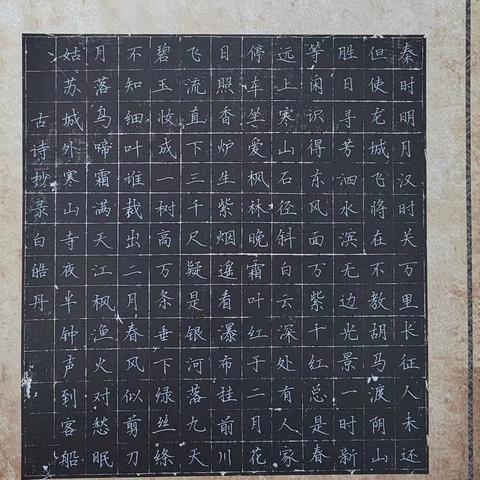 秦时明月汉时关万里长征人未还
但使龙城飞将在不教胡马渡阴山
胜日寻芳泗水滨无边光景一时新
等闲识得东风面万紫千红总是春
远上寒山石径斜白云深处有人家
停车坐爱枫林晚霜叶红于二月花
日照香炉生紫烟遥看瀑布挂前川
飞流直下三千尺疑是银河落九天
碧玉妆成一树高万条垂下绿丝绦
不知细叶谁裁出二月春风似剪刀
月落乌啼霜满天江枫渔火对愁眠
姑苏城外寒山寺夜半钟声到客船
古诗抄录白皓丹